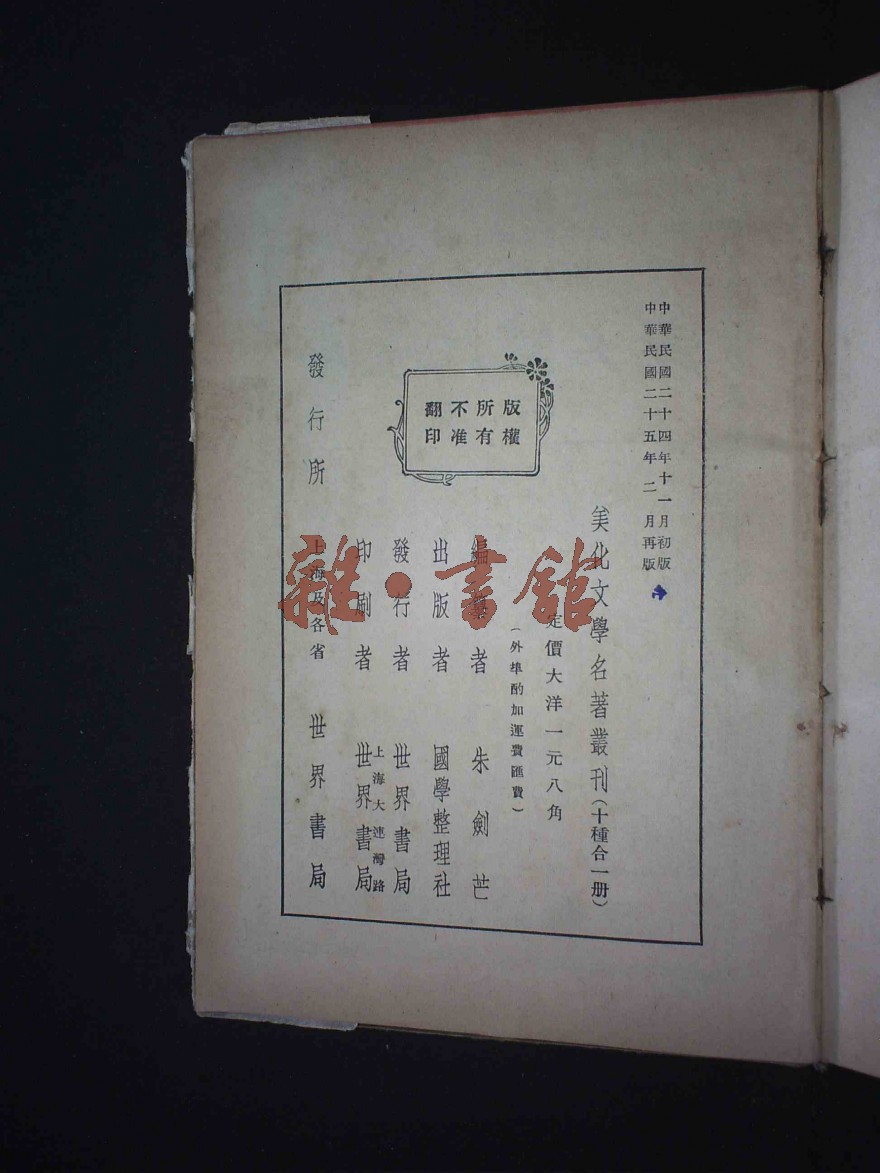 中華民國二十四年十一月初版
中華民國二十五年二月再版
美化文學名著叢刊（十種合一册）
定價大洋一元八角
（外埠酌加運費匯費）
版權
所有
不准
翻印
編纂者 朱劍芒
出版者 國學整理社
發行者 世界書局
印刷者 上海大連灣路
世界書局
發行所 上海及各省 世界書局
雜·書館